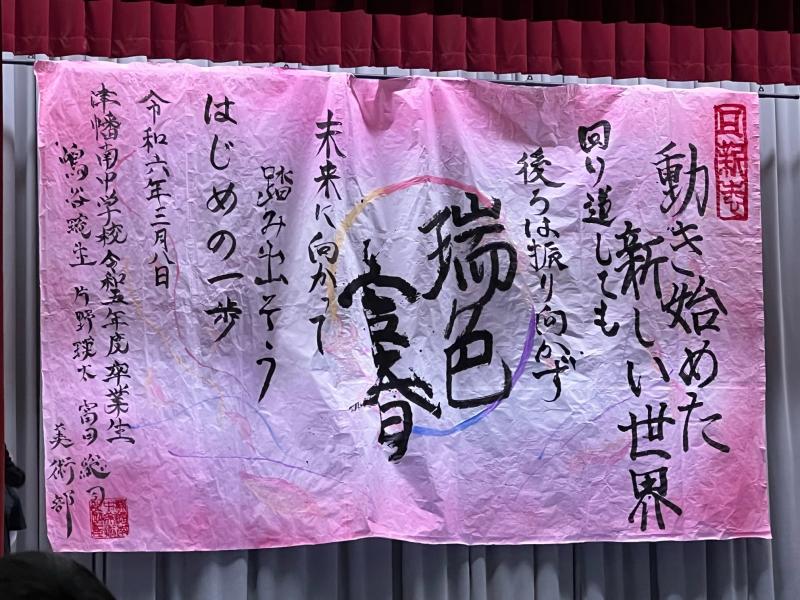 日新志
動き始めた
新しい世界
回り道しても
後ろは振り向かず
瑞色
含春
未来に向かって
踏み出そう
はじめの一歩
令和六年三月八日
津幡南中学校令和五年度卒業生
片野 富田総司
美術部